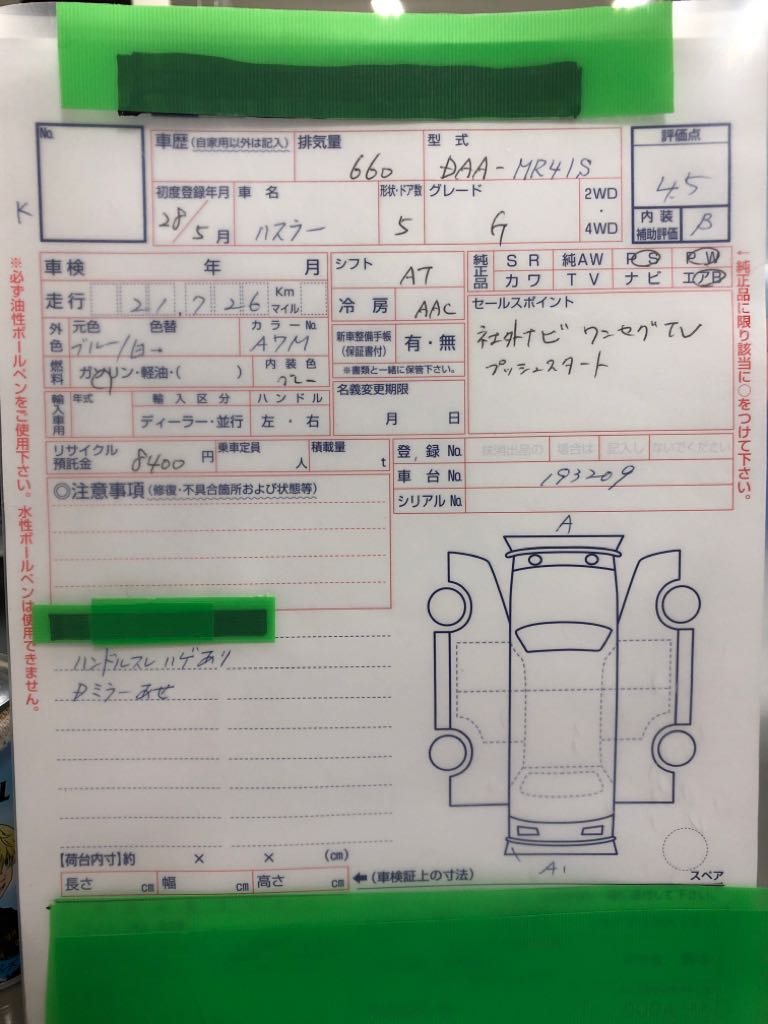 No.
車歴(自家用以外は記入)
排気量 660
型式 DAA-MR41S
評価点 4.5
K
初度登録年月 28/5月
車名 ハスラー
形状・ドア数 5
グレード G
2WD・4WD
内装補助評価 B
車検 年 月
シフト AT
純正品 SR 純AW PS PW
カワ TV ナビ エアB
走行 21,726 Km マイル
冷房 AAC
セールスポイント
社外ナビ ワンセグTV
プッシュスタート
外色 元色 ブルー/白→ 色替 カラーNo. A7M
新車整備手帳(保証書付) 有・無
※書類と一緒に保管下さい。
燃料 ガソリン・軽油・( ) 内装色
名義変更期限 月 日
輸入車用 年式 輸入区分 ハンドル
ディーラー・並行 左・右
リサイクル預託金 8400円
乗車定員 人
積載量 t
登録No. 抹消出品の 場合は 記入し ないでください
車台No. 193209
シリアルNo.
◎注意事項(修復・不具合箇所および状態等)
ハンドルスレ ハゲあり
Dミラーあせ
A
A1
スペア
【荷台内寸】約 × × (cm)
長さ cm 幅 cm 高さ cm
←(車検証上の寸法)
※必ず油性ボールペンをご使用下さい。水性ボールペンは使用できません。
←純正品に限り該当に○をつけて下さい。